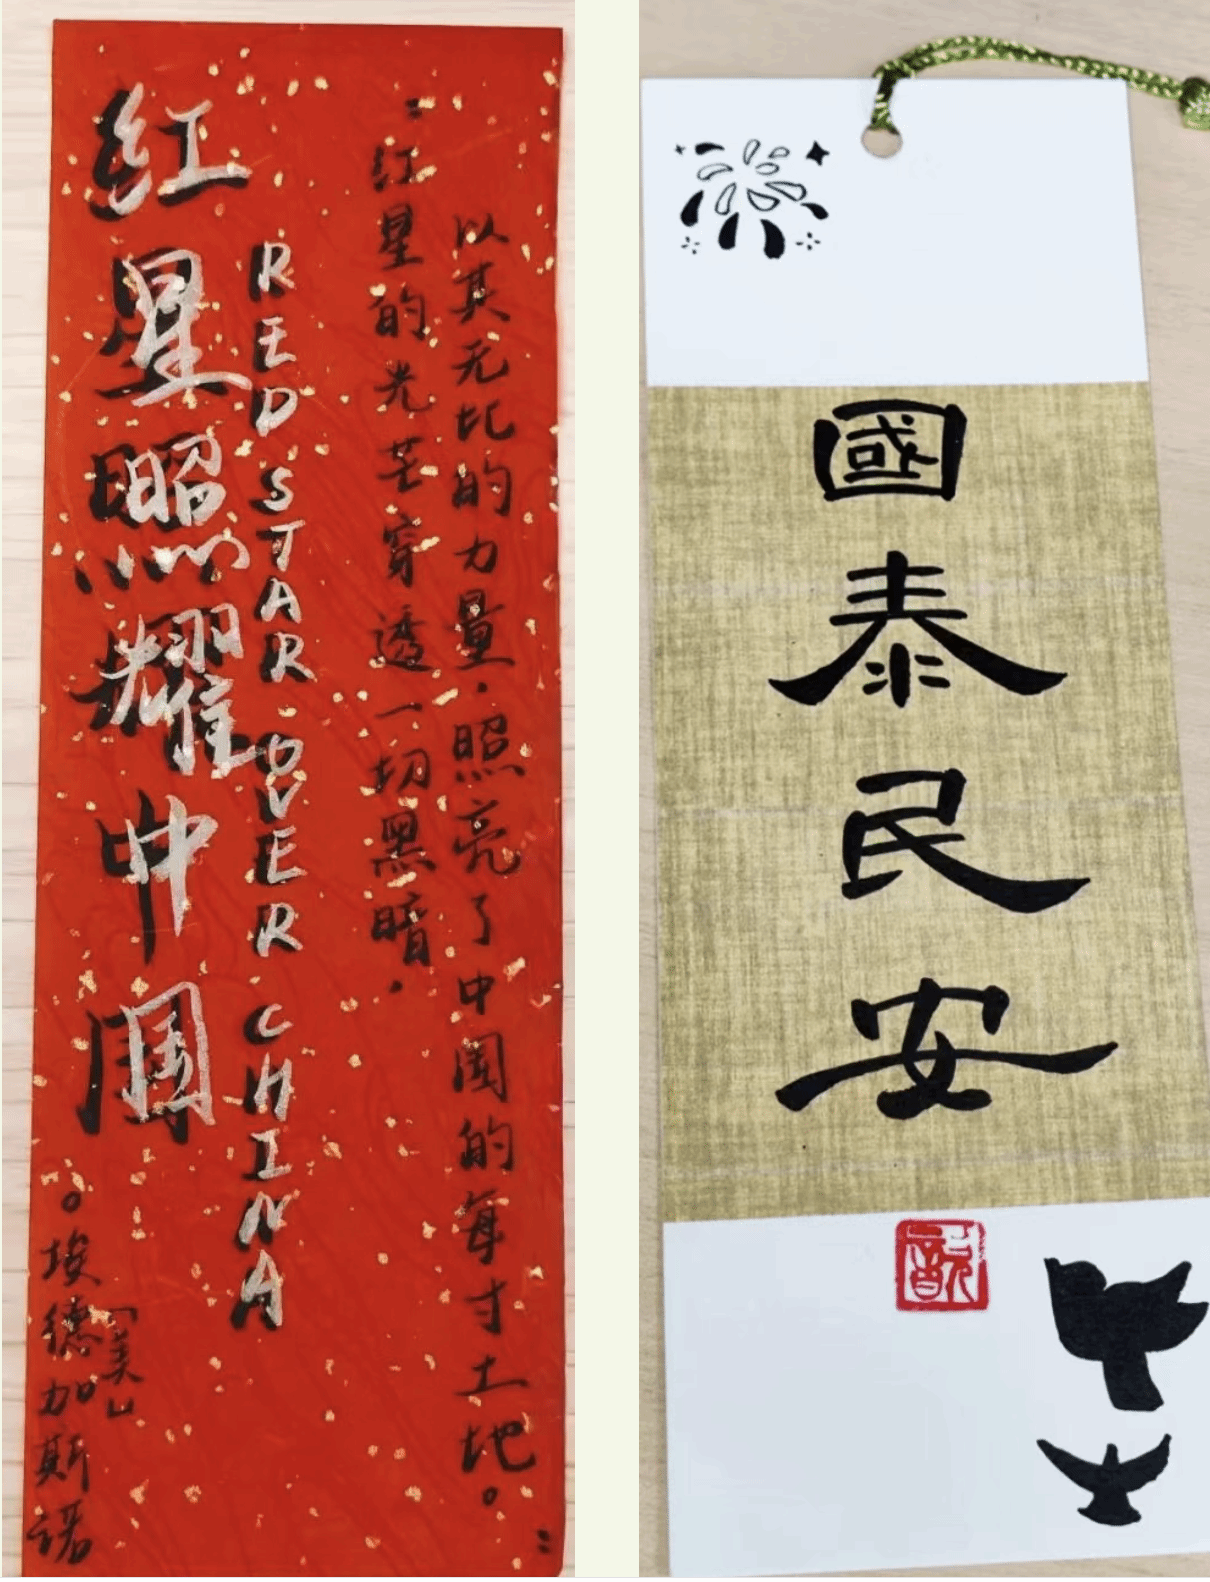 红星照耀中国
RED STAR OVER CHINA
“红星的光芒穿透一切黑暗,
以其无比的力量,照亮了中国的每寸土地。”
「美」
。埃德加斯诺
國泰民安